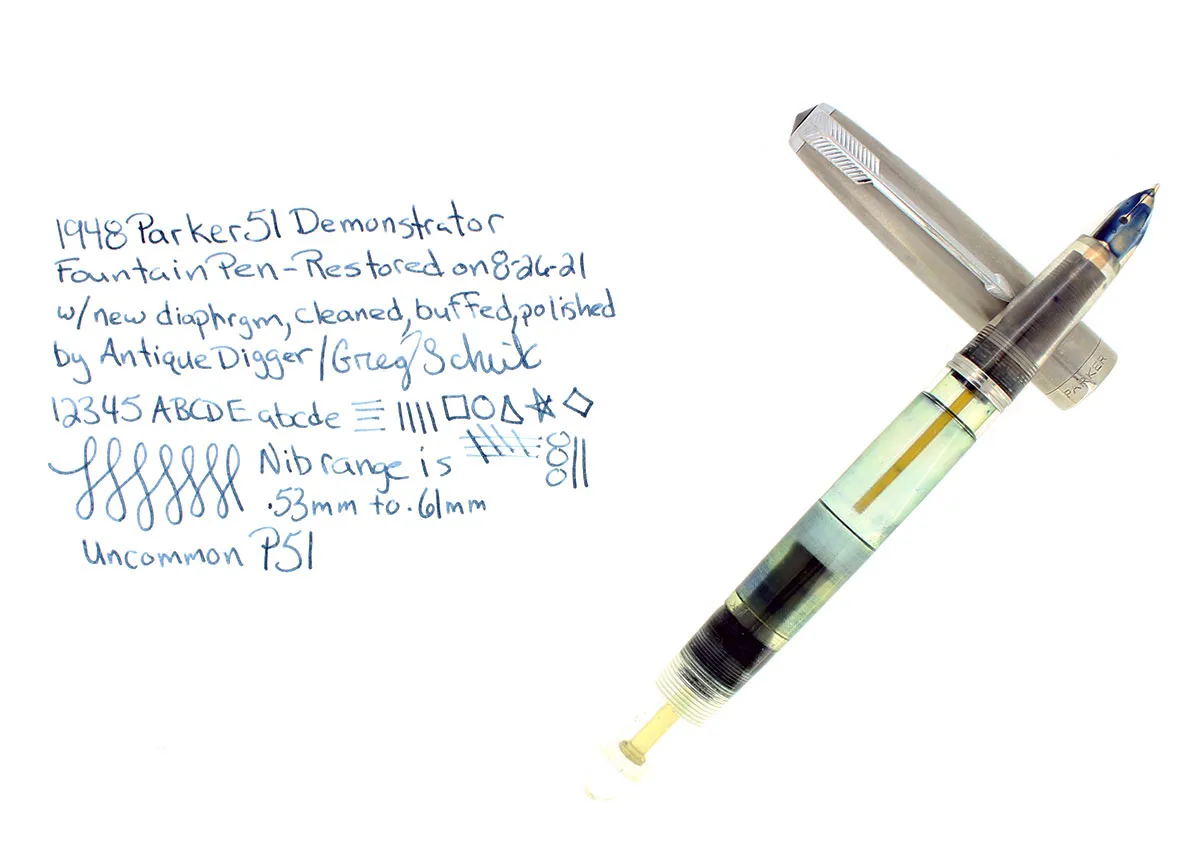 1948 Parker 51 Demonstrator
Fountain Pen - Restored on 8-26-21
w/ new diaphrgm, cleaned, buffed, polished
by Antique Digger / Greg
12345 ABCDE abcde
Nib range is
.53mm to .61mm
Uncommon P51
PARKER